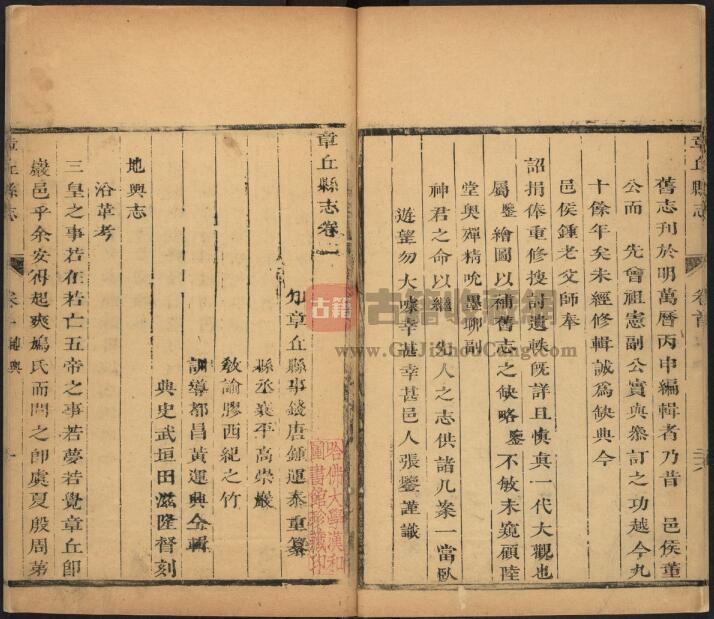 舊志刊於明萬曆丙申編輯者乃昔 邑侯董
公而 先曾祖憲副公實與叅訂之功越今九
十餘年矣未經修輯誠為缺典今
邑侯鍾老父師奉
詔捐俸重修搜討遺軼旣詳且慎眞一代大觀也
屬鑒繪圖以補舊志之缺略鑒不敏未窺顧陸
堂奧殫精吮墨聊副
神君之命以繼 先人之志供諸几案一當臥
遊望勿大噱幸甚幸甚邑人張鑒謹識
章丘縣志
卷首
章丘縣志卷一
知章丘縣事錢唐鍾運泰重纂
縣丞襄平高崇巖
敎諭膠西紀之竹
訓導都昌黃運興仝輯
典史武垣田滋隆督刻
地輿志
沿革考
三皇之事若在若亡五帝之事若夢若覺章丘卽
巖邑乎余安得起爽鳩氏而問之卽虞夏殷周第
章丘縣志
卷一 輿
一
哈佛大學漢和
圖書館珍藏印
古籍
古籍收藏網
www.GuJiShouCang.com